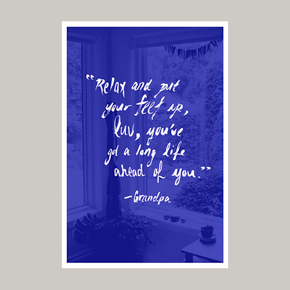 “Relax and put
your feet up,
luv, you've
got a long life
ahead of you.”
—Grandpa